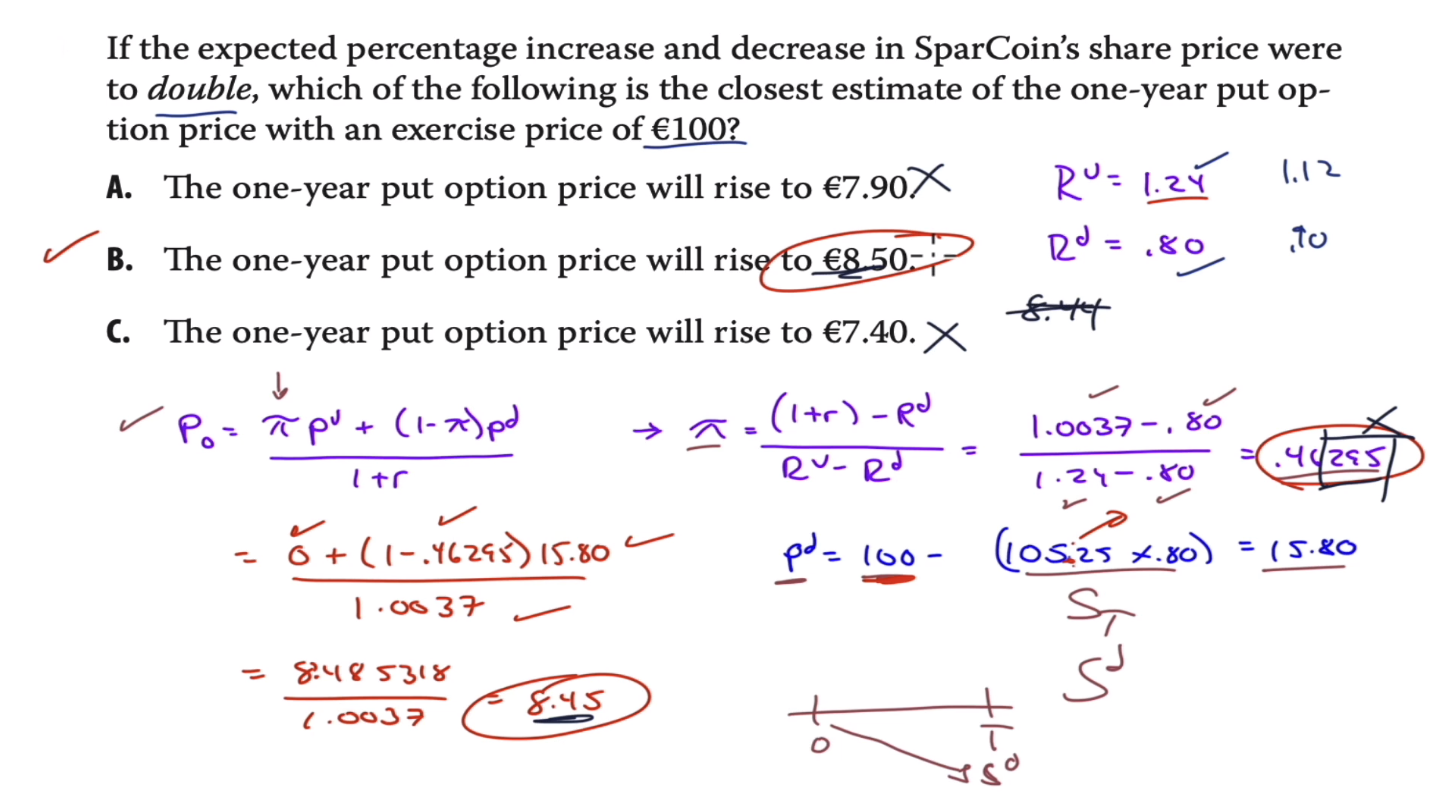 If the expected percentage increase and decrease in SparCoin's share price were
to double, which of the following is the closest estimate of the one-year put op-
tion price with an exercise price of €100?
A. The one-year put option price will rise to €7.90.
B. The one-year put option price will rise to €8.50.
C. The one-year put option price will rise to €7.40.
Rᵘ = 1.24 1.12
Rᵈ = .80 .10
8.44
P₀ = πpᵘ + (1-π)pᵈ / 1+r → π = (1+r) - Rᵈ / Rᵘ - Rᵈ = 1.0037 - .80 / 1.24 - .80 = .46295
= 0 + (1-.46295)15.80 / 1.0037
pᵈ = 100 - (105.25 x .80) = 15.80
Sᴛ
Sᵈ
= 8.485318 / 1.0037 = 8.45
0 1
Sᵈ